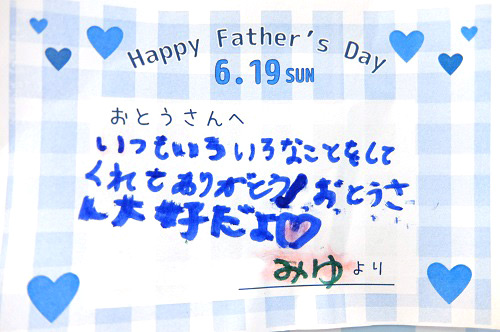 Happy Father's Day
6.19 SUN
おとうさんへ
いつもいろいろなことをして
くれてありがとう!おとうさ
ん大好だよ♡
みゆ より